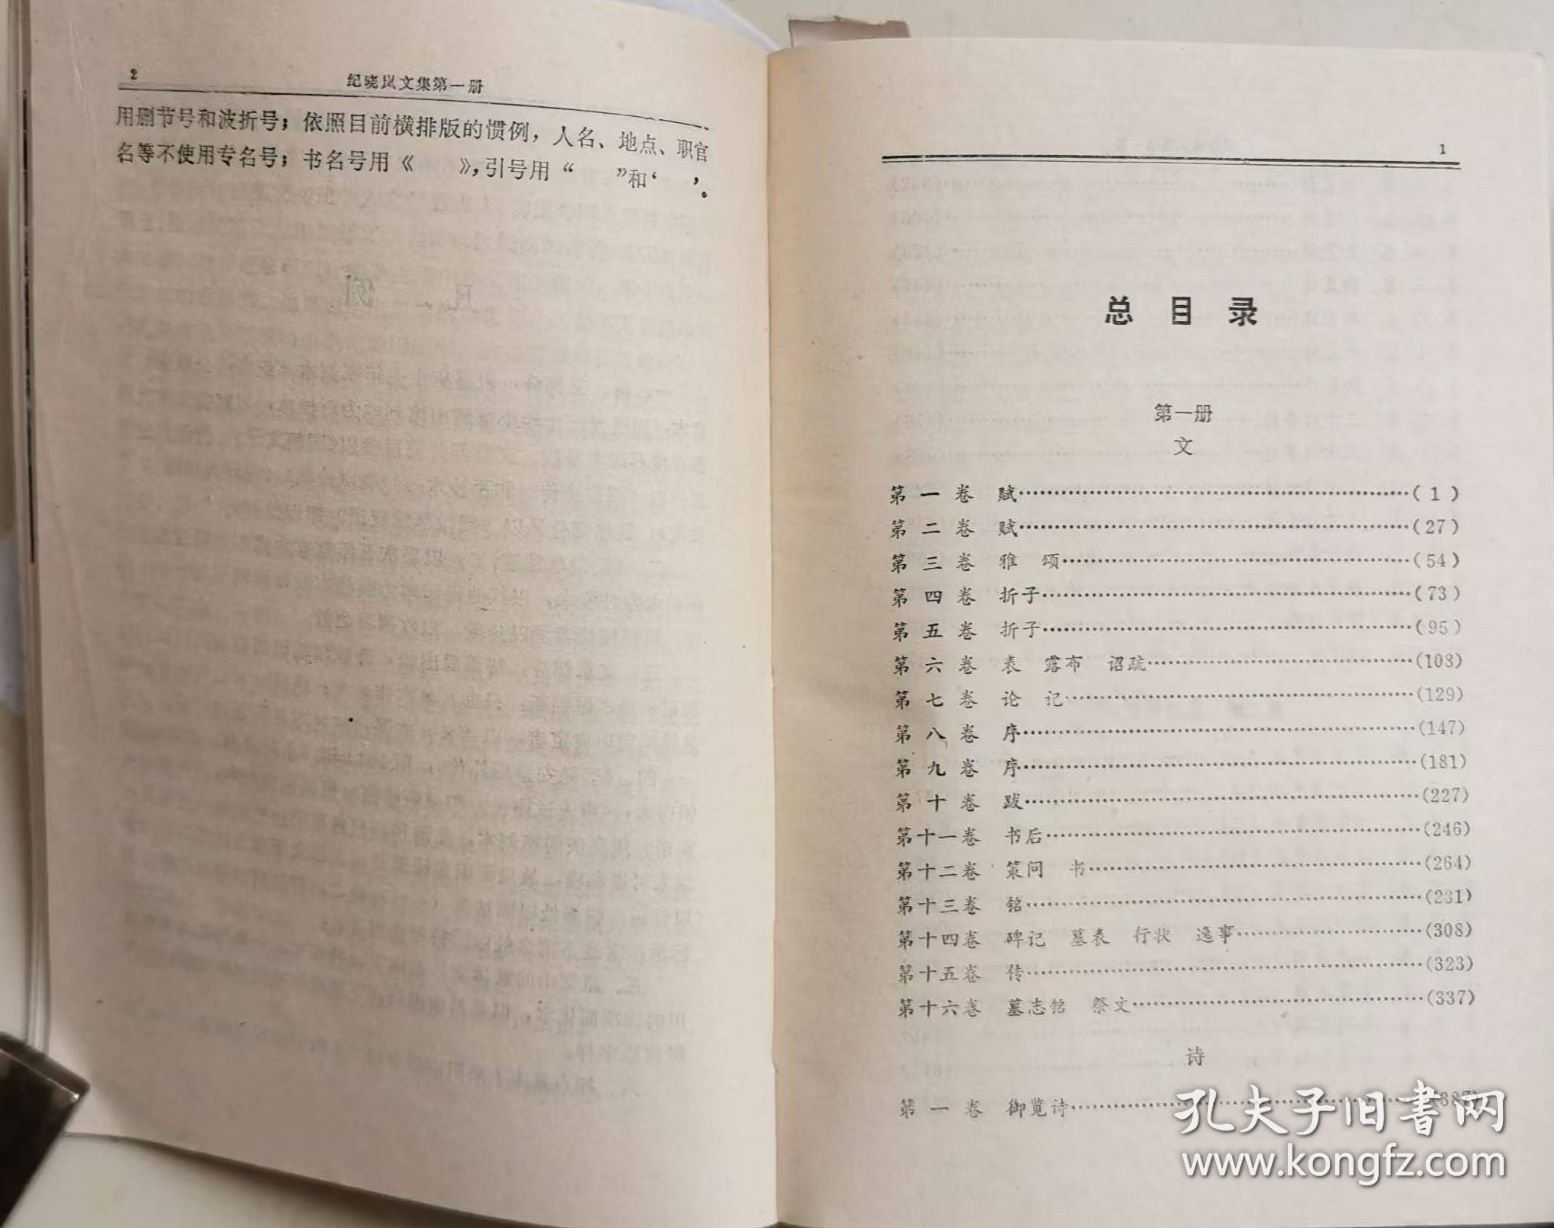 2
纪晓岚文集第一册
用删节号和波折号；依照目前横排版的惯例，人名、地点、职官
名等不使用专名号；书名号用《　　》，引号用“　　”和‘　　’。
1
总 目 录
第一册
文
第 一 卷 赋……………………………………(1)
第 二 卷 赋……………………………………(27)
第 三 卷 雅 颂……………………………………(54)
第 四 卷 折子……………………………………(73)
第 五 卷 折子……………………………………(95)
第 六 卷 表 露布 诏疏……………………………………(103)
第 七 卷 论 记……………………………………(129)
第 八 卷 序……………………………………(147)
第 九 卷 序……………………………………(181)
第 十 卷 跋……………………………………(227)
第十一卷 书后……………………………………(246)
第十二卷 策问 书……………………………………(264)
第十三卷 铭……………………………………(281)
第十四卷 碑记 墓表 行状 逸事……………………………………(308)
第十五卷 传……………………………………(323)
第十六卷 墓志铭 祭文……………………………………(337)
诗
第 一 卷 御览诗……………………………………(387)
孔夫子旧书网
www.kongfz.com